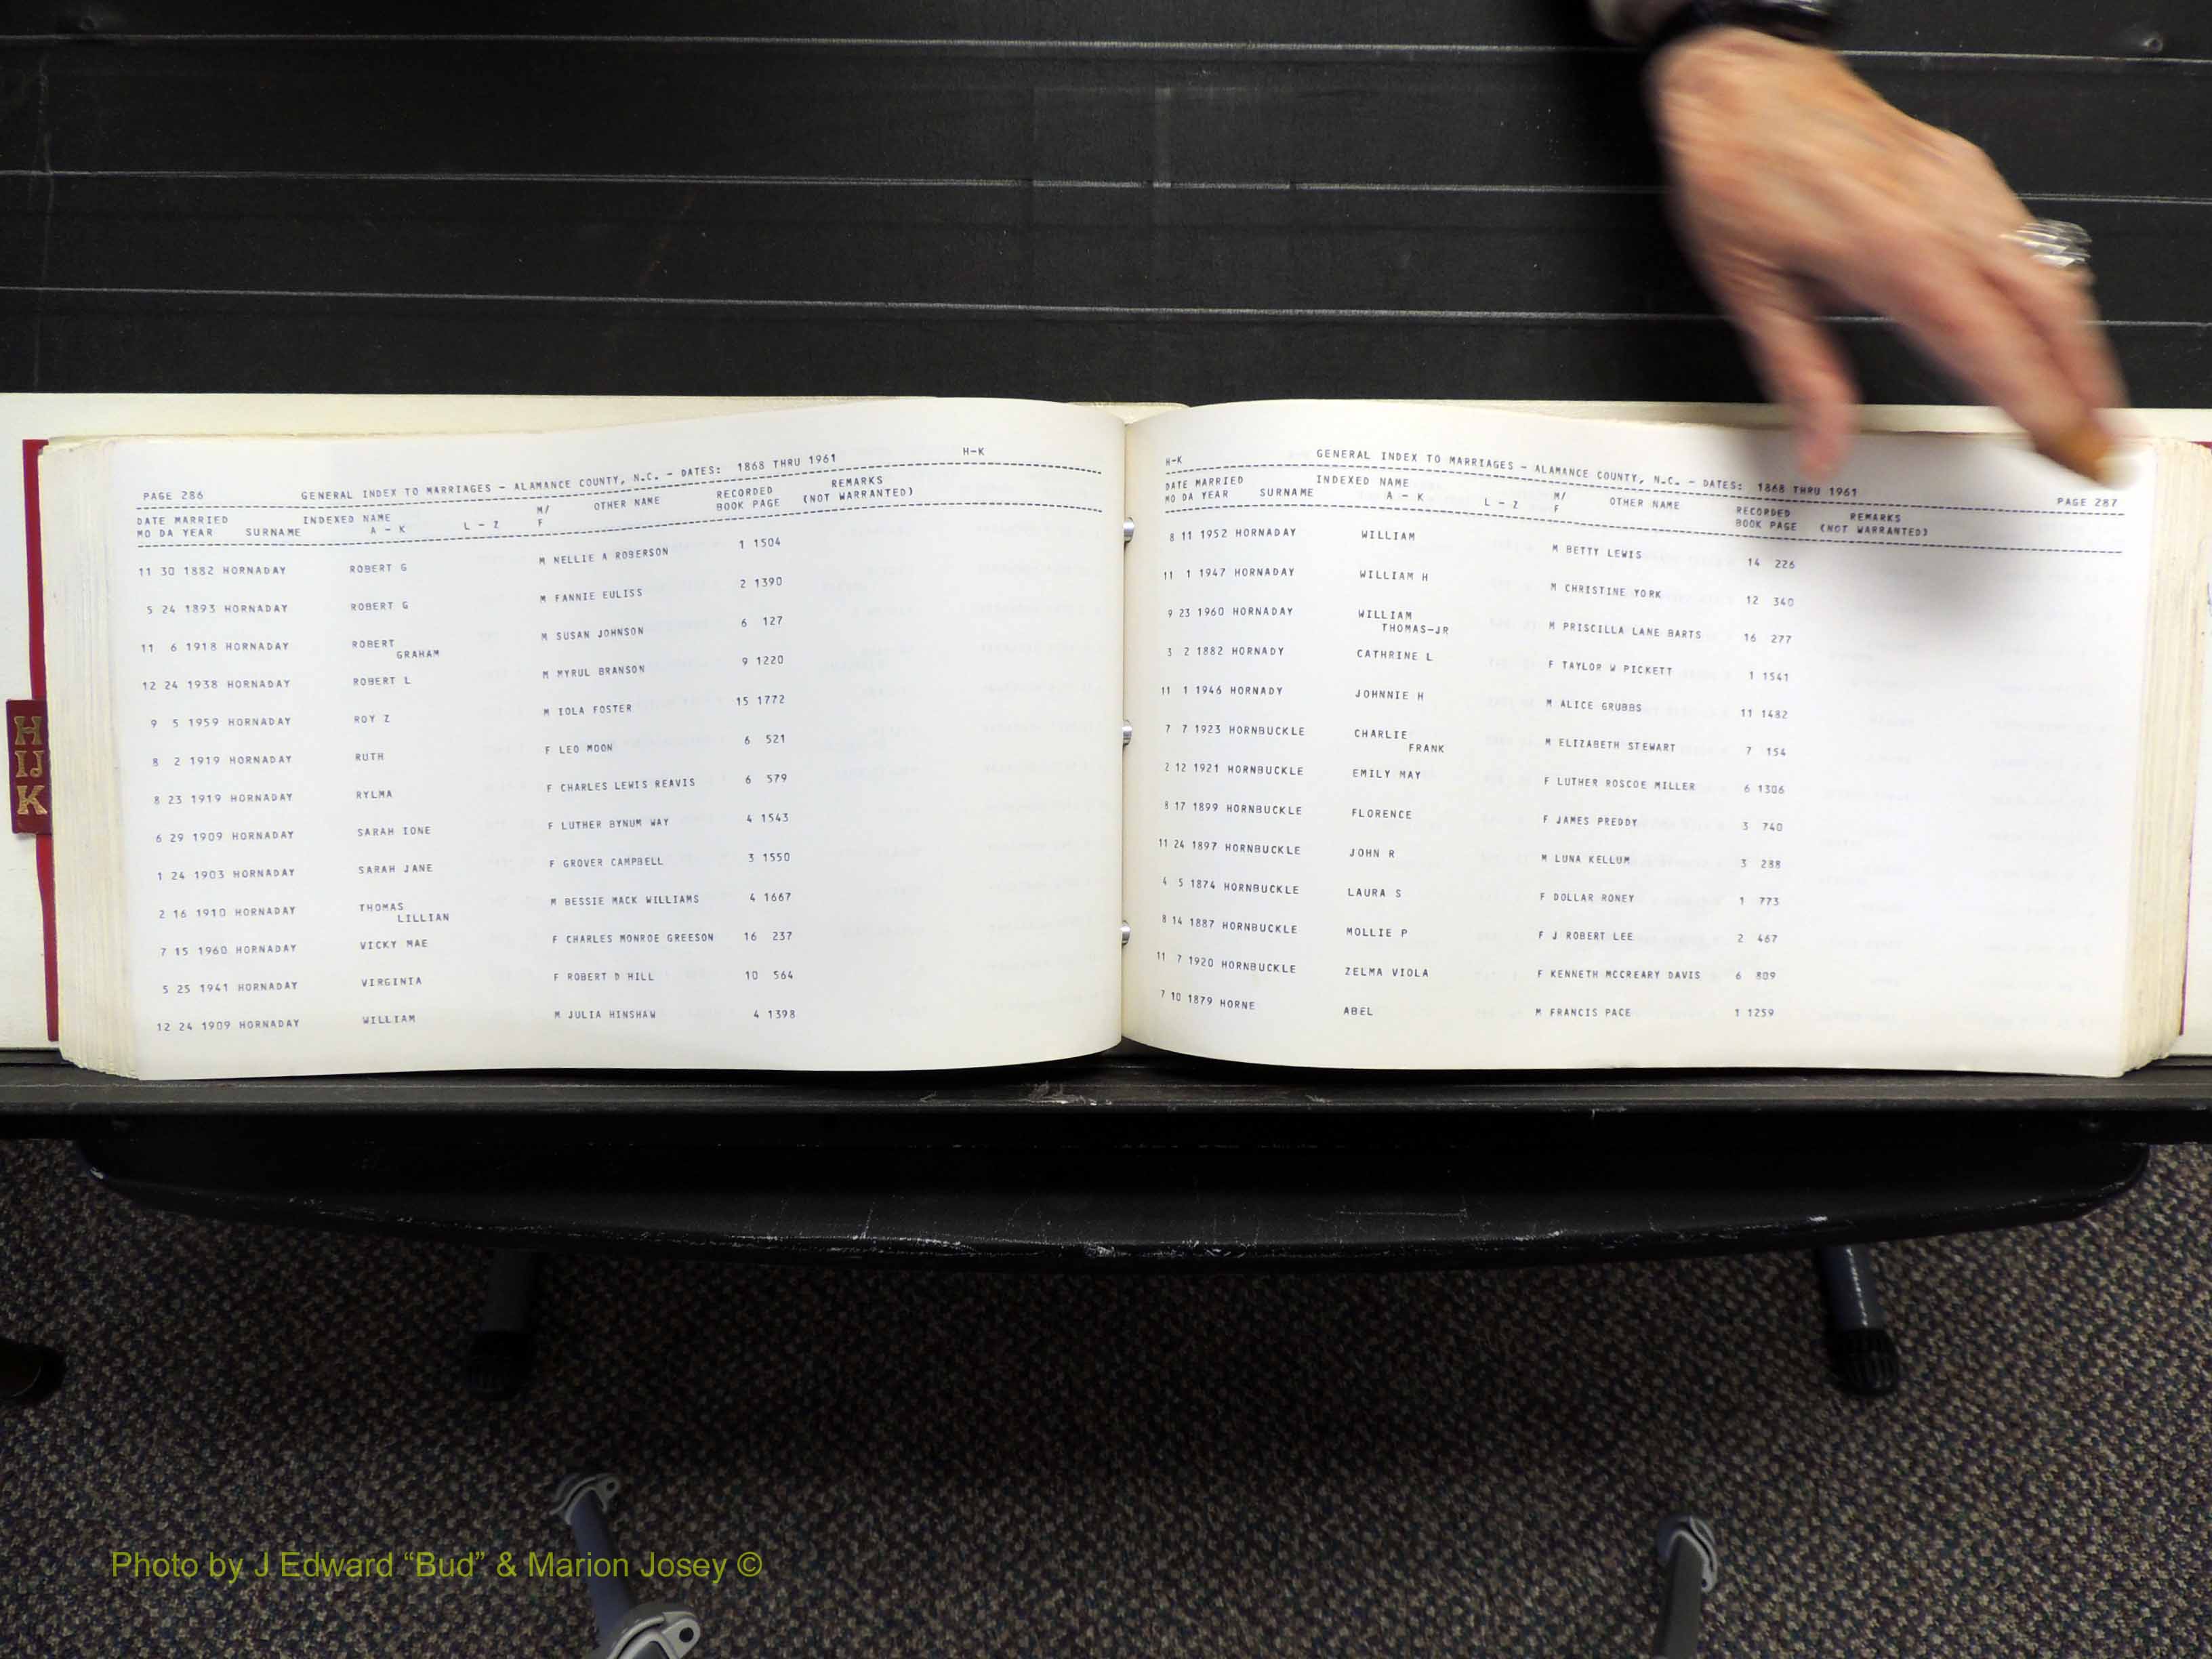 H
IJ
K
PAGE 286 GENERAL INDEX TO MARRIAGES - ALAMANCE COUNTY, N.C. - DATES: 1868 THRU 1961 H-K
DATE MARRIED INDEXED NAME M/ OTHER NAME RECORDED REMARKS
MO DA YEAR SURNAME A - K L - Z F BOOK PAGE (NOT WARRANTED)
11 30 1882 HORNADAY ROBERT G M NELLIE A ROBERSON 1 1504
5 24 1893 HORNADAY ROBERT G M FANNIE EULISS 2 1390
11 6 1918 HORNADAY ROBERT M SUSAN JOHNSON 6 127
GRAHAM
12 24 1938 HORNADAY ROBERT L M MYRUL BRANSON 9 1220
9 5 1959 HORNADAY ROY Z M IOLA FOSTER 15 1772
8 2 1919 HORNADAY RUTH F LEO MOON 6 521
8 23 1919 HORNADAY RYLMA F CHARLES LEWIS REAVIS 6 579
6 29 1909 HORNADAY SARAH IONE F LUTHER BYNUM WAY 4 1543
1 24 1903 HORNADAY SARAH JANE F GROVER CAMPBELL 3 1550
2 16 1910 HORNADAY THOMAS M BESSIE MACK WILLIAMS 4 1667
LILLIAN
7 15 1960 HORNADAY VICKY MAE F CHARLES MONROE GREESON 16 237
5 25 1941 HORNADAY VIRGINIA F ROBERT D HILL 10 564
12 24 1909 HORNADAY WILLIAM M JULIA HINSHAW 4 1398
H-K GENERAL INDEX TO MARRIAGES - ALAMANCE COUNTY, N.C. - DATES: 1868 THRU 1961 PAGE 287
DATE MARRIED INDEXED NAME M/ OTHER NAME RECORDED REMARKS
MO DA YEAR SURNAME A - K L - Z F BOOK PAGE (NOT WARRANTED)
8 11 1952 HORNADAY WILLIAM M BETTY LEWIS 14 226
11 1 1947 HORNADAY WILLIAM H M CHRISTINE YORK 12 340
9 23 1960 HORNADAY WILLIAM M PRISCILLA LANE BARTS 16 277
THOMAS-JR
3 2 1882 HORNADY CATHRINE L F TAYLOR W PICKETT 1 1541
11 1 1946 HORNADY JOHNNIE H M ALICE GRUBBS 11 1482
7 7 1923 HORNBUCKLE CHARLIE M ELIZABETH STEWART 7 154
FRANK
2 12 1921 HORNBUCKLE EMILY MAY F LUTHER ROSCOE MILLER 6 1306
8 17 1899 HORNBUCKLE FLORENCE F JAMES PREDDY 3 740
11 24 1897 HORNBUCKLE JOHN R M LUNA KELLUM 3 288
4 5 1874 HORNBUCKLE LAURA S F DOLLAR RONEY 1 773
8 14 1887 HORNBUCKLE MOLLIE P F J ROBERT LEE 2 467
11 7 1920 HORNBUCKLE ZELMA VIOLA F KENNETH MCCREARY DAVIS 6 809
7 10 1879 HORNE ABEL M FRANCIS PACE 1 1259
Photo by J Edward “Bud” & Marion Josey ©